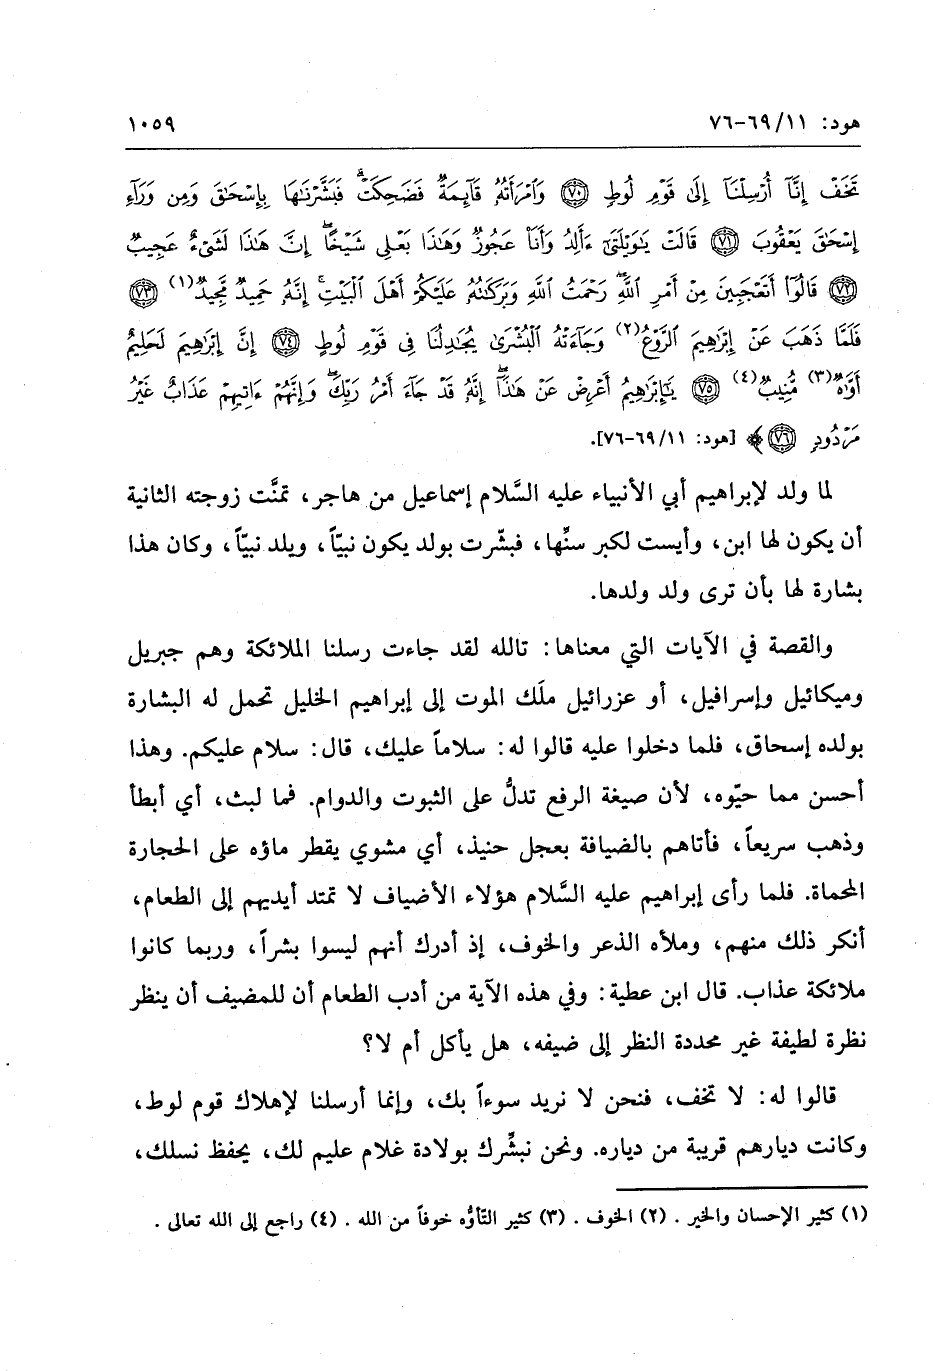 هود: ٦٩/١١-٧٦ ١٠٥٩
تَخَفْ إِنَّآ أُرْسِلْنَآ إِلَىٰ قَوْمِ لُوطٍ ﴿٧٠﴾ وَٱمْرَأَتُهُۥ قَآئِمَةٌ فَضَحِكَتْ فَبَشَّرْنَٰهَا بِإِسْحَٰقَ وَمِن وَرَآءِ
إِسْحَٰقَ يَعْقُوبَ ﴿٧١﴾ قَالَتْ يَٰوَيْلَتَىٰٓ ءَأَلِدُ وَأَنَا۠ عَجُوزٌ وَهَٰذَا بَعْلِى شَيْخًا إِنَّ هَٰذَا لَشَىْءٌ عَجِيبٌ
﴿٧٢﴾ قَالُوٓا۟ أَتَعْجَبِينَ مِنْ أَمْرِ ٱللَّهِ رَحْمَتُ ٱللَّهِ وَبَرَكَٰتُهُۥ عَلَيْكُمْ أَهْلَ ٱلْبَيْتِ إِنَّهُۥ حَمِيدٌ مَّجِيدٌ(١) ﴿٧٣﴾
فَلَمَّا ذَهَبَ عَنْ إِبْرَٰهِيمَ ٱلرَّوْعُ(٢) وَجَآءَتْهُ ٱلْبُشْرَىٰ يُجَٰدِلُنَا فِى قَوْمِ لُوطٍ ﴿٧٤﴾ إِنَّ إِبْرَٰهِيمَ لَحَلِيمٌ
أَوَّٰهٌ(٣) مُّنِيبٌ(٤) ﴿٧٥﴾ يَٰٓإِبْرَٰهِيمُ أَعْرِضْ عَنْ هَٰذَآ إِنَّهُۥ قَدْ جَآءَ أَمْرُ رَبِّكَ وَإِنَّهُمْ ءَاتِيهِمْ عَذَابٌ غَيْرُ
مَرْدُودٍ ﴿٧٦﴾ ﴾ [هود: ٦٩/١١-٧٦].
لما ولد لإبراهيم أبي الأنبياء عليه السَّلام إسماعيل من هاجر، تمنَّت زوجته الثانية
أن يكون لها ابن، وأيست لكبر سنِّها، فبشّرت بولد يكون نبيّاً، ويلد نبيّاً، وكان هذا
بشارة لها بأن ترى ولد ولدها.
والقصة في الآيات التي معناها: تالله لقد جاءت رسلنا الملائكة وهم جبريل
وميكائيل وإسرافيل، أو عزرائيل ملَك الموت إلى إبراهيم الخليل تحمل له البشارة
بولده إسحاق، فلما دخلوا عليه قالوا له: سلاماً عليك، قال: سلام عليكم. وهذا
أحسن مما حيّوه، لأن صيغة الرفع تدلُّ على الثبوت والدوام. فما لبث، أي أبطأ
وذهب سريعاً، فأتاهم بالضيافة بعجل حنيذ، أي مشوي يقطر ماؤه على الحجارة
المحماة. فلما رأى إبراهيم عليه السَّلام هؤلاء الأضياف لا تمتد أيديهم إلى الطعام،
أنكر ذلك منهم، وملأه الذعر والخوف، إذ أدرك أنهم ليسوا بشراً، وربما كانوا
ملائكة عذاب. قال ابن عطية: وفي هذه الآية من أدب الطعام أن للمضيف أن ينظر
نظرة لطيفة غير محددة النظر إلى ضيفه، هل يأكل أم لا؟
قالوا له: لا تخف، فنحن لا نريد سوءاً بك، وإنما أرسلنا لإهلاك قوم لوط،
وكانت ديارهم قريبة من دياره. ونحن نبشِّرك بولادة غلام عليم لك، يحفظ نسلك،
(١) كثير الإحسان والخير . (٢) الخوف . (٣) كثير التّأوُّه خوفاً من الله . (٤) راجع إلى الله تعالى .